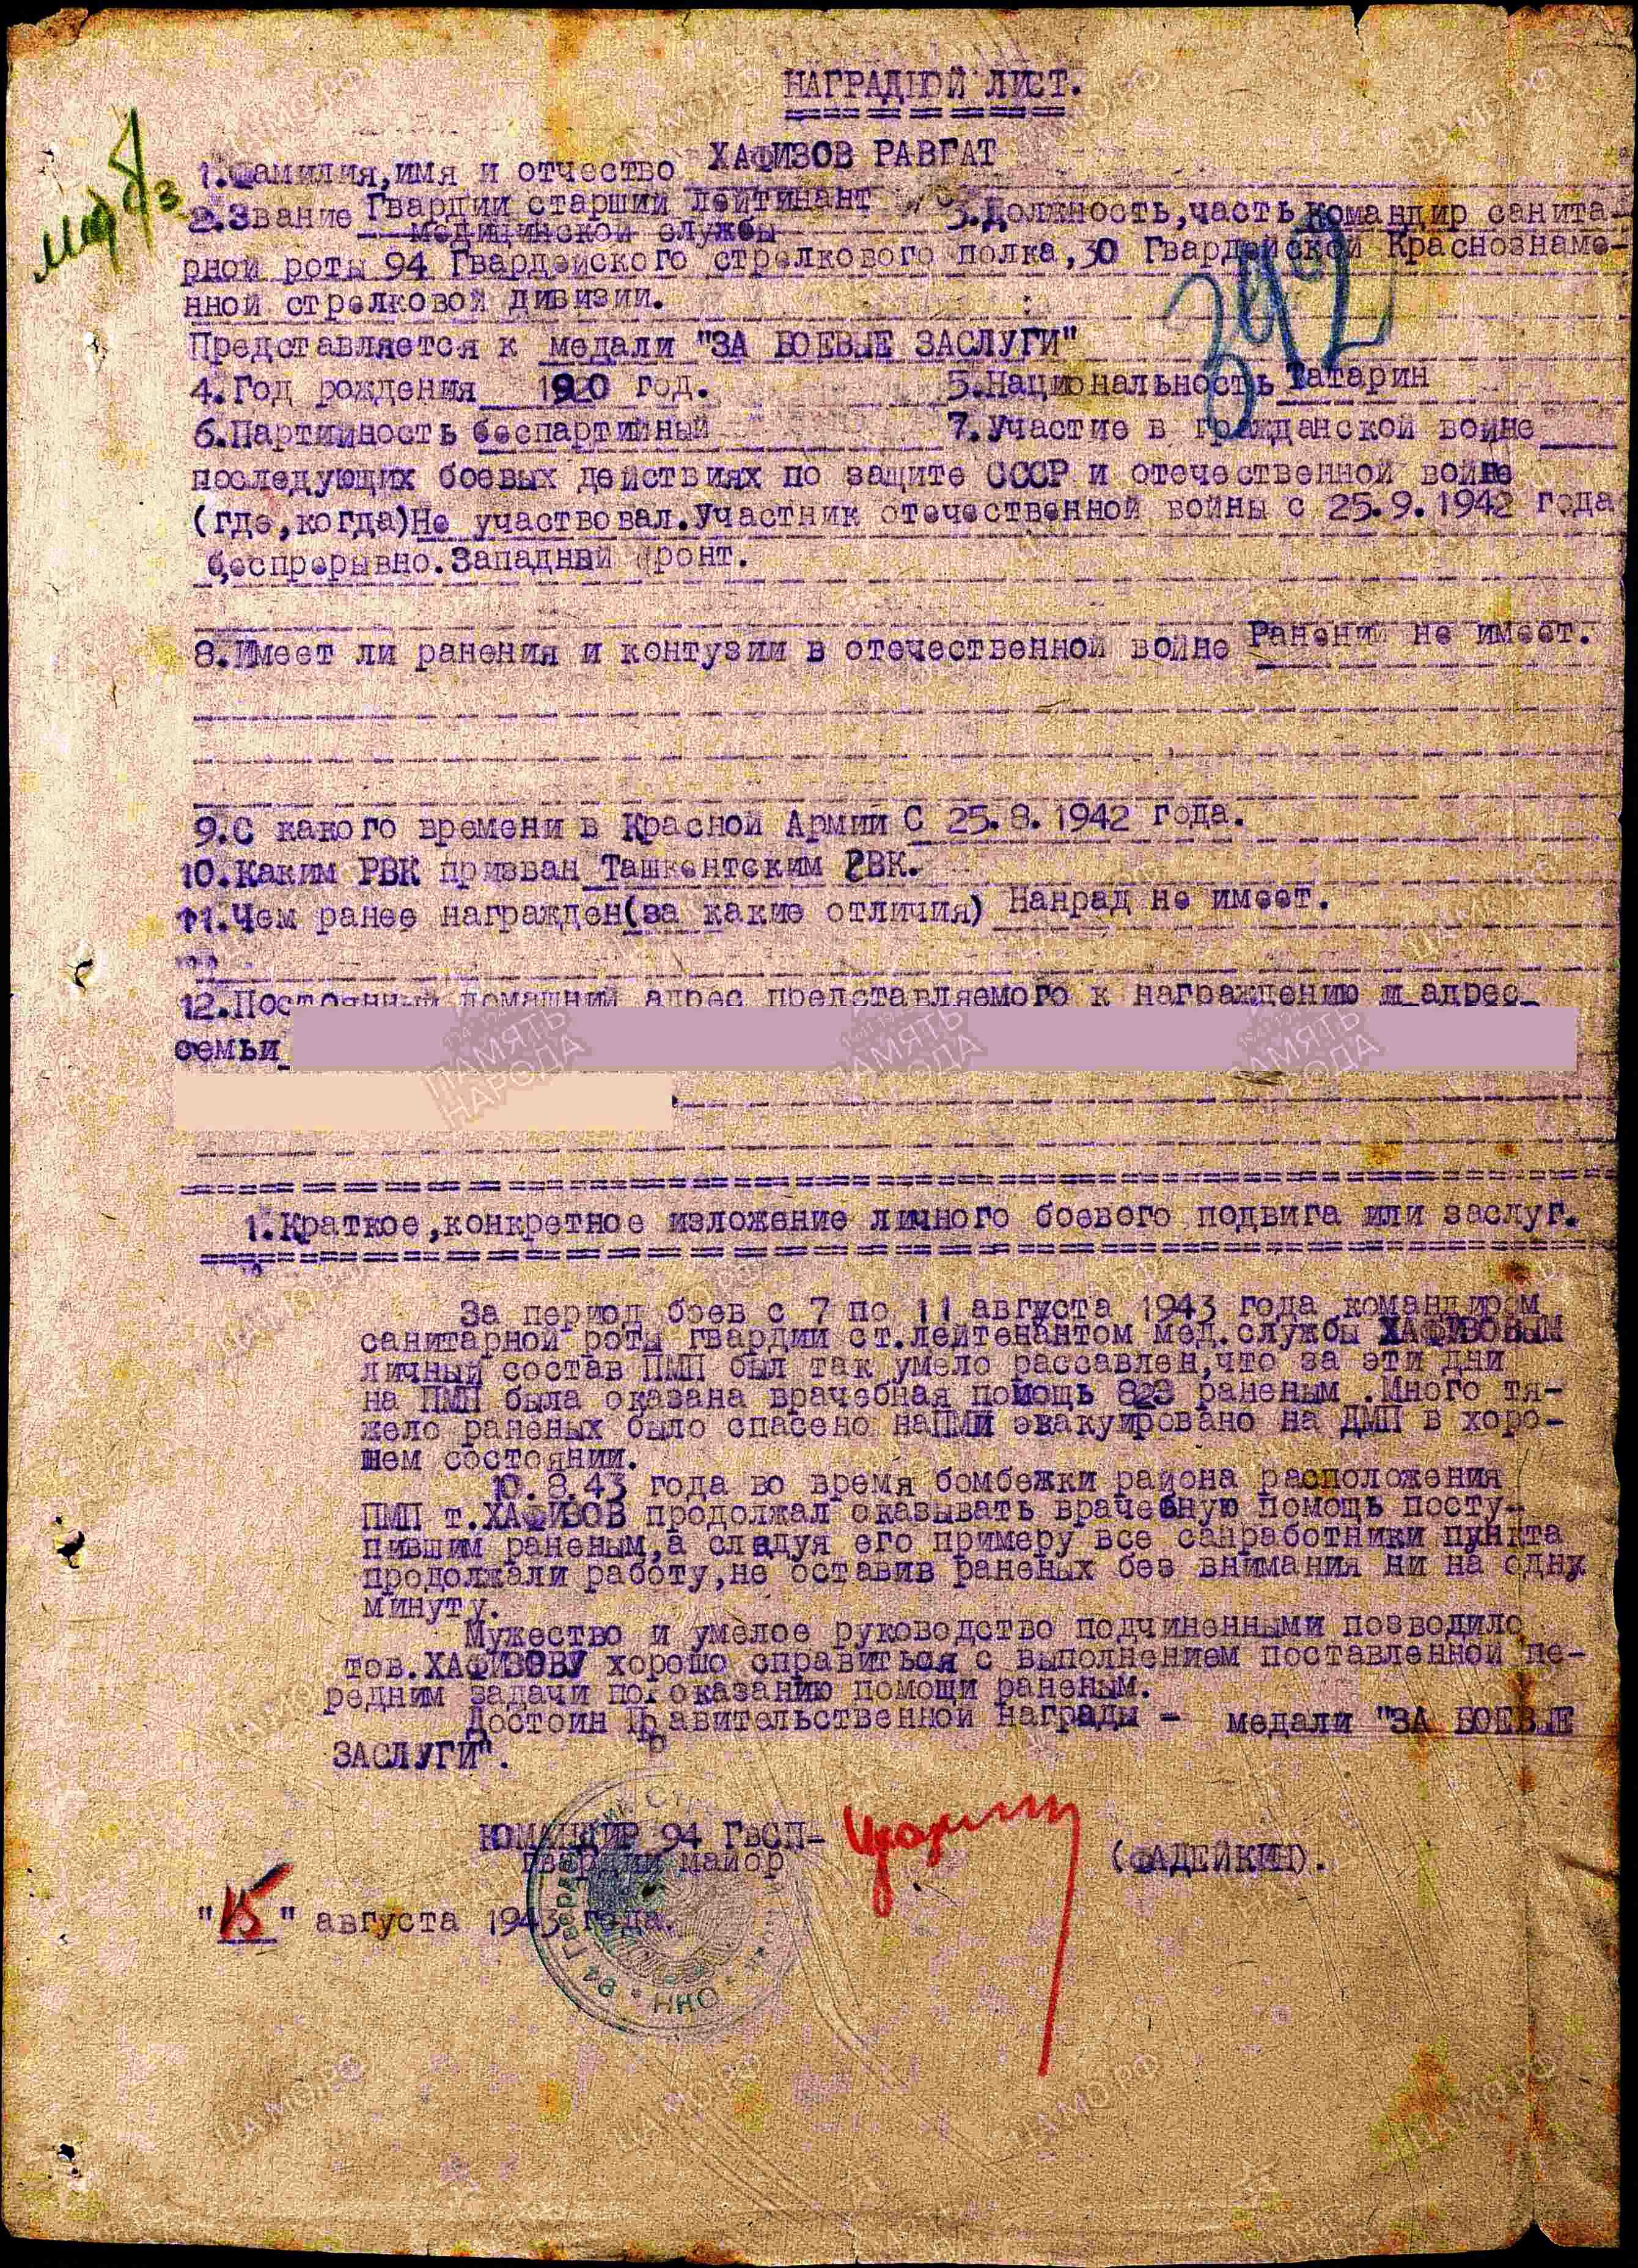 НАГРАДНОЙ ЛИСТ.
1.Фамилия,имя и отчество ХАФИЗОВ РАВГАТ
2.Звание Гвардии старший лейтинант медицинской службы 3.Должность,часть командир санита-
рной роты 94 Гвардейского стрелкового полка,30 Гвардейской Краснознаме-
нной стрелковой дивизии.
392
Представляется к медали "ЗА БОЕВЫЕ ЗАСЛУГИ"
4.Год рождения 1920 год. 5.Национальность Татарин
6.Партийность беспартийный 7.Участие в гражданской войне
последующих боевых действиях по защите СССР и отечественной войне
(где,когда)Не участвовал.Участник отечественной войны с 25.9.1942 года
беспрерывно.Западный фронт.
8.Имеет ли ранения и контузии в отечественной войне Ранений не имеет.
9.С какого времени в Красной Армии С 25.8.1942 года.
10.Каким РВК призван Ташкентским РВК.
11.Чем ранее награжден(за какие отличия) Нанрад не имеет.
12.Постоянный домашний адрес представляемого к награждению и адрес
семьи
1.Краткое,конкретное изложение личного боевого подвига или заслуг.
За период боев с 7 по 11 августа 1943 года командиром
санитарной роты гвардии ст.лейтенантом мед.службы ХАФИЗОВЫМ
личный состав ПМП был так умело рассавлен,что за эти дни
на ПМП была оказана врачебная помощь 823 раненым .Много тя-
жело раненых было спасено наПМП эвакуировано на ДМП в хоро-
шем состоянии.
10.8.43 года во время бомбежки района расположения
ПМП т.ХАФИЗОВ продолжал оказывать врачебную помощь посту-
пившим раненым,а следуя его примеру все санработники пункта
продолжали работу,не оставив раненых без внимания ни на одну
минуту.
Мужество и умелое руководство подчиненными позводило
тов.ХАФИЗОВУ хорошо справиться с выполнением поставленной пе-
редним задачи по оказанию помощи раненым.
Достоин Правительственной награды - медали "ЗА БОЕВЫЕ
ЗАСЛУГИ".
КОМАНДИР 94 ГвСП-
гвардии майор (ФАДЕЙКИН).
"15" августа 1943 года.